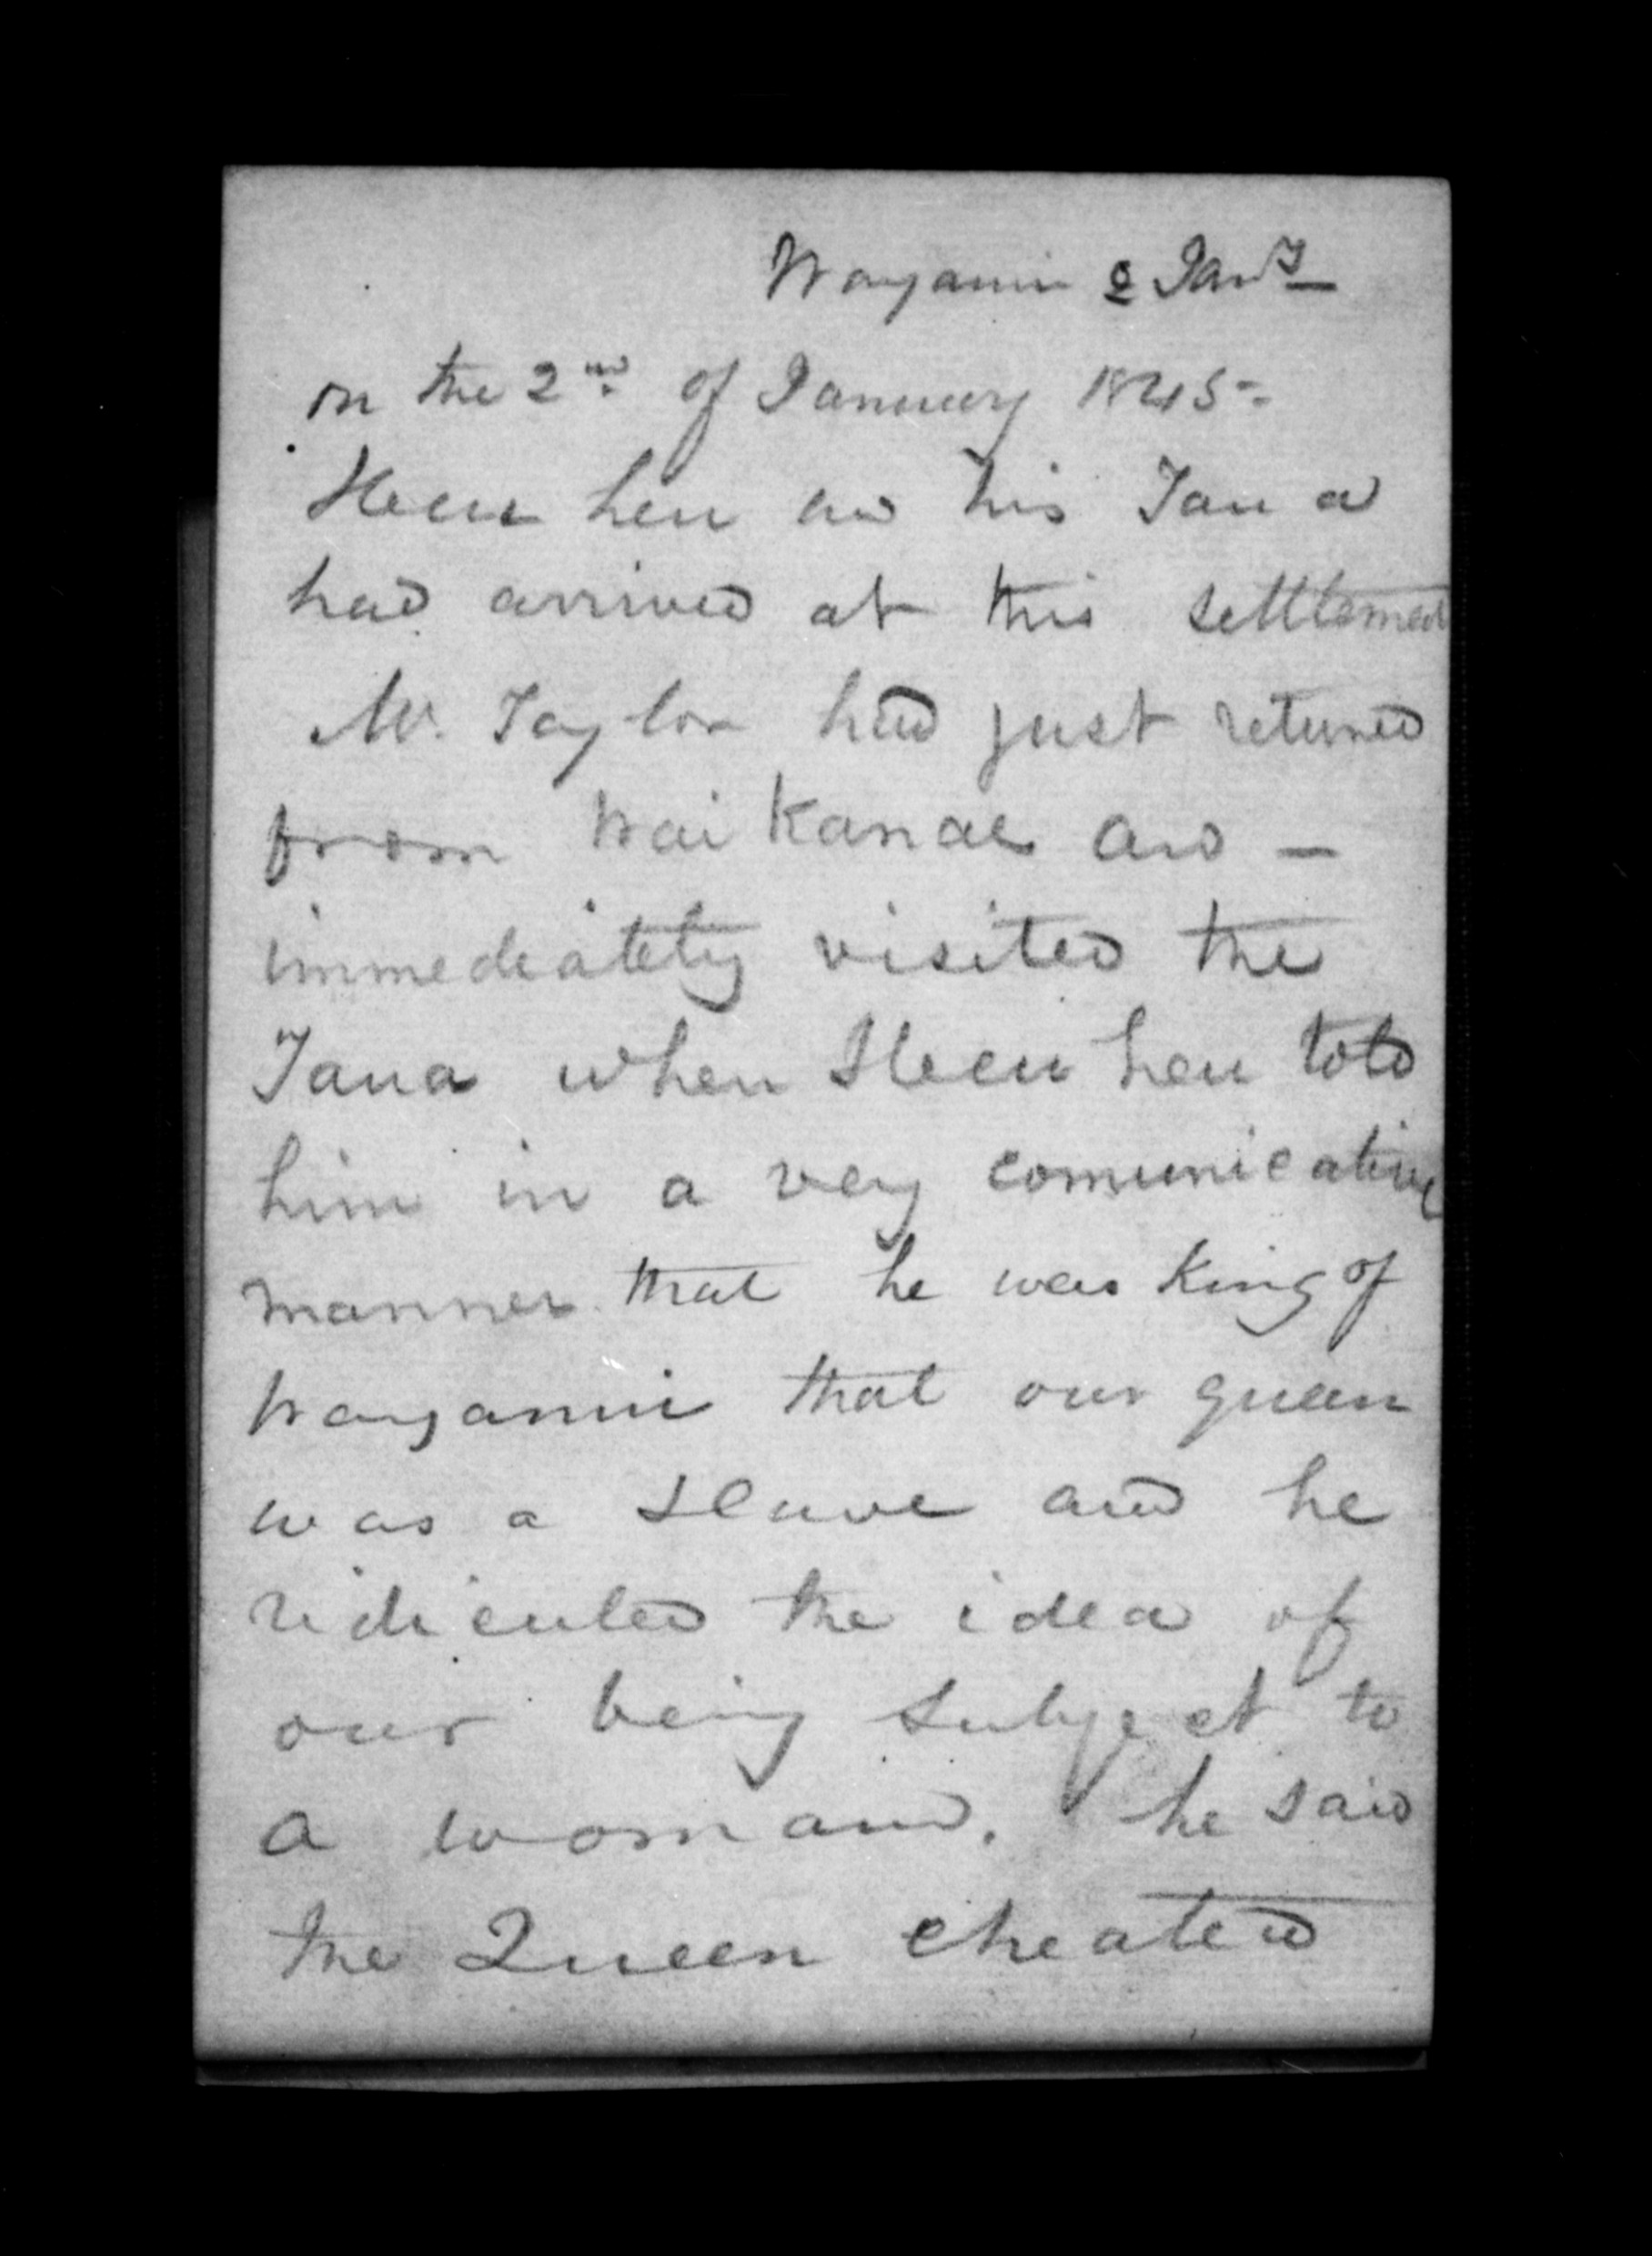 Wanganui 2 Jany
on the 2nd of January 1845 -
Heu heu and his Taua
had arrived at this settlement
Mr. Taylor had just returned
from Wai Kanae and -
immediately visited the
Taua when Heu heu told
him in a very comunicative
manner that he was King of
Wanganui that our queen
was a slave and he
ridiculed the idea of
our being subject to
a woman. he said
the Queen cheated